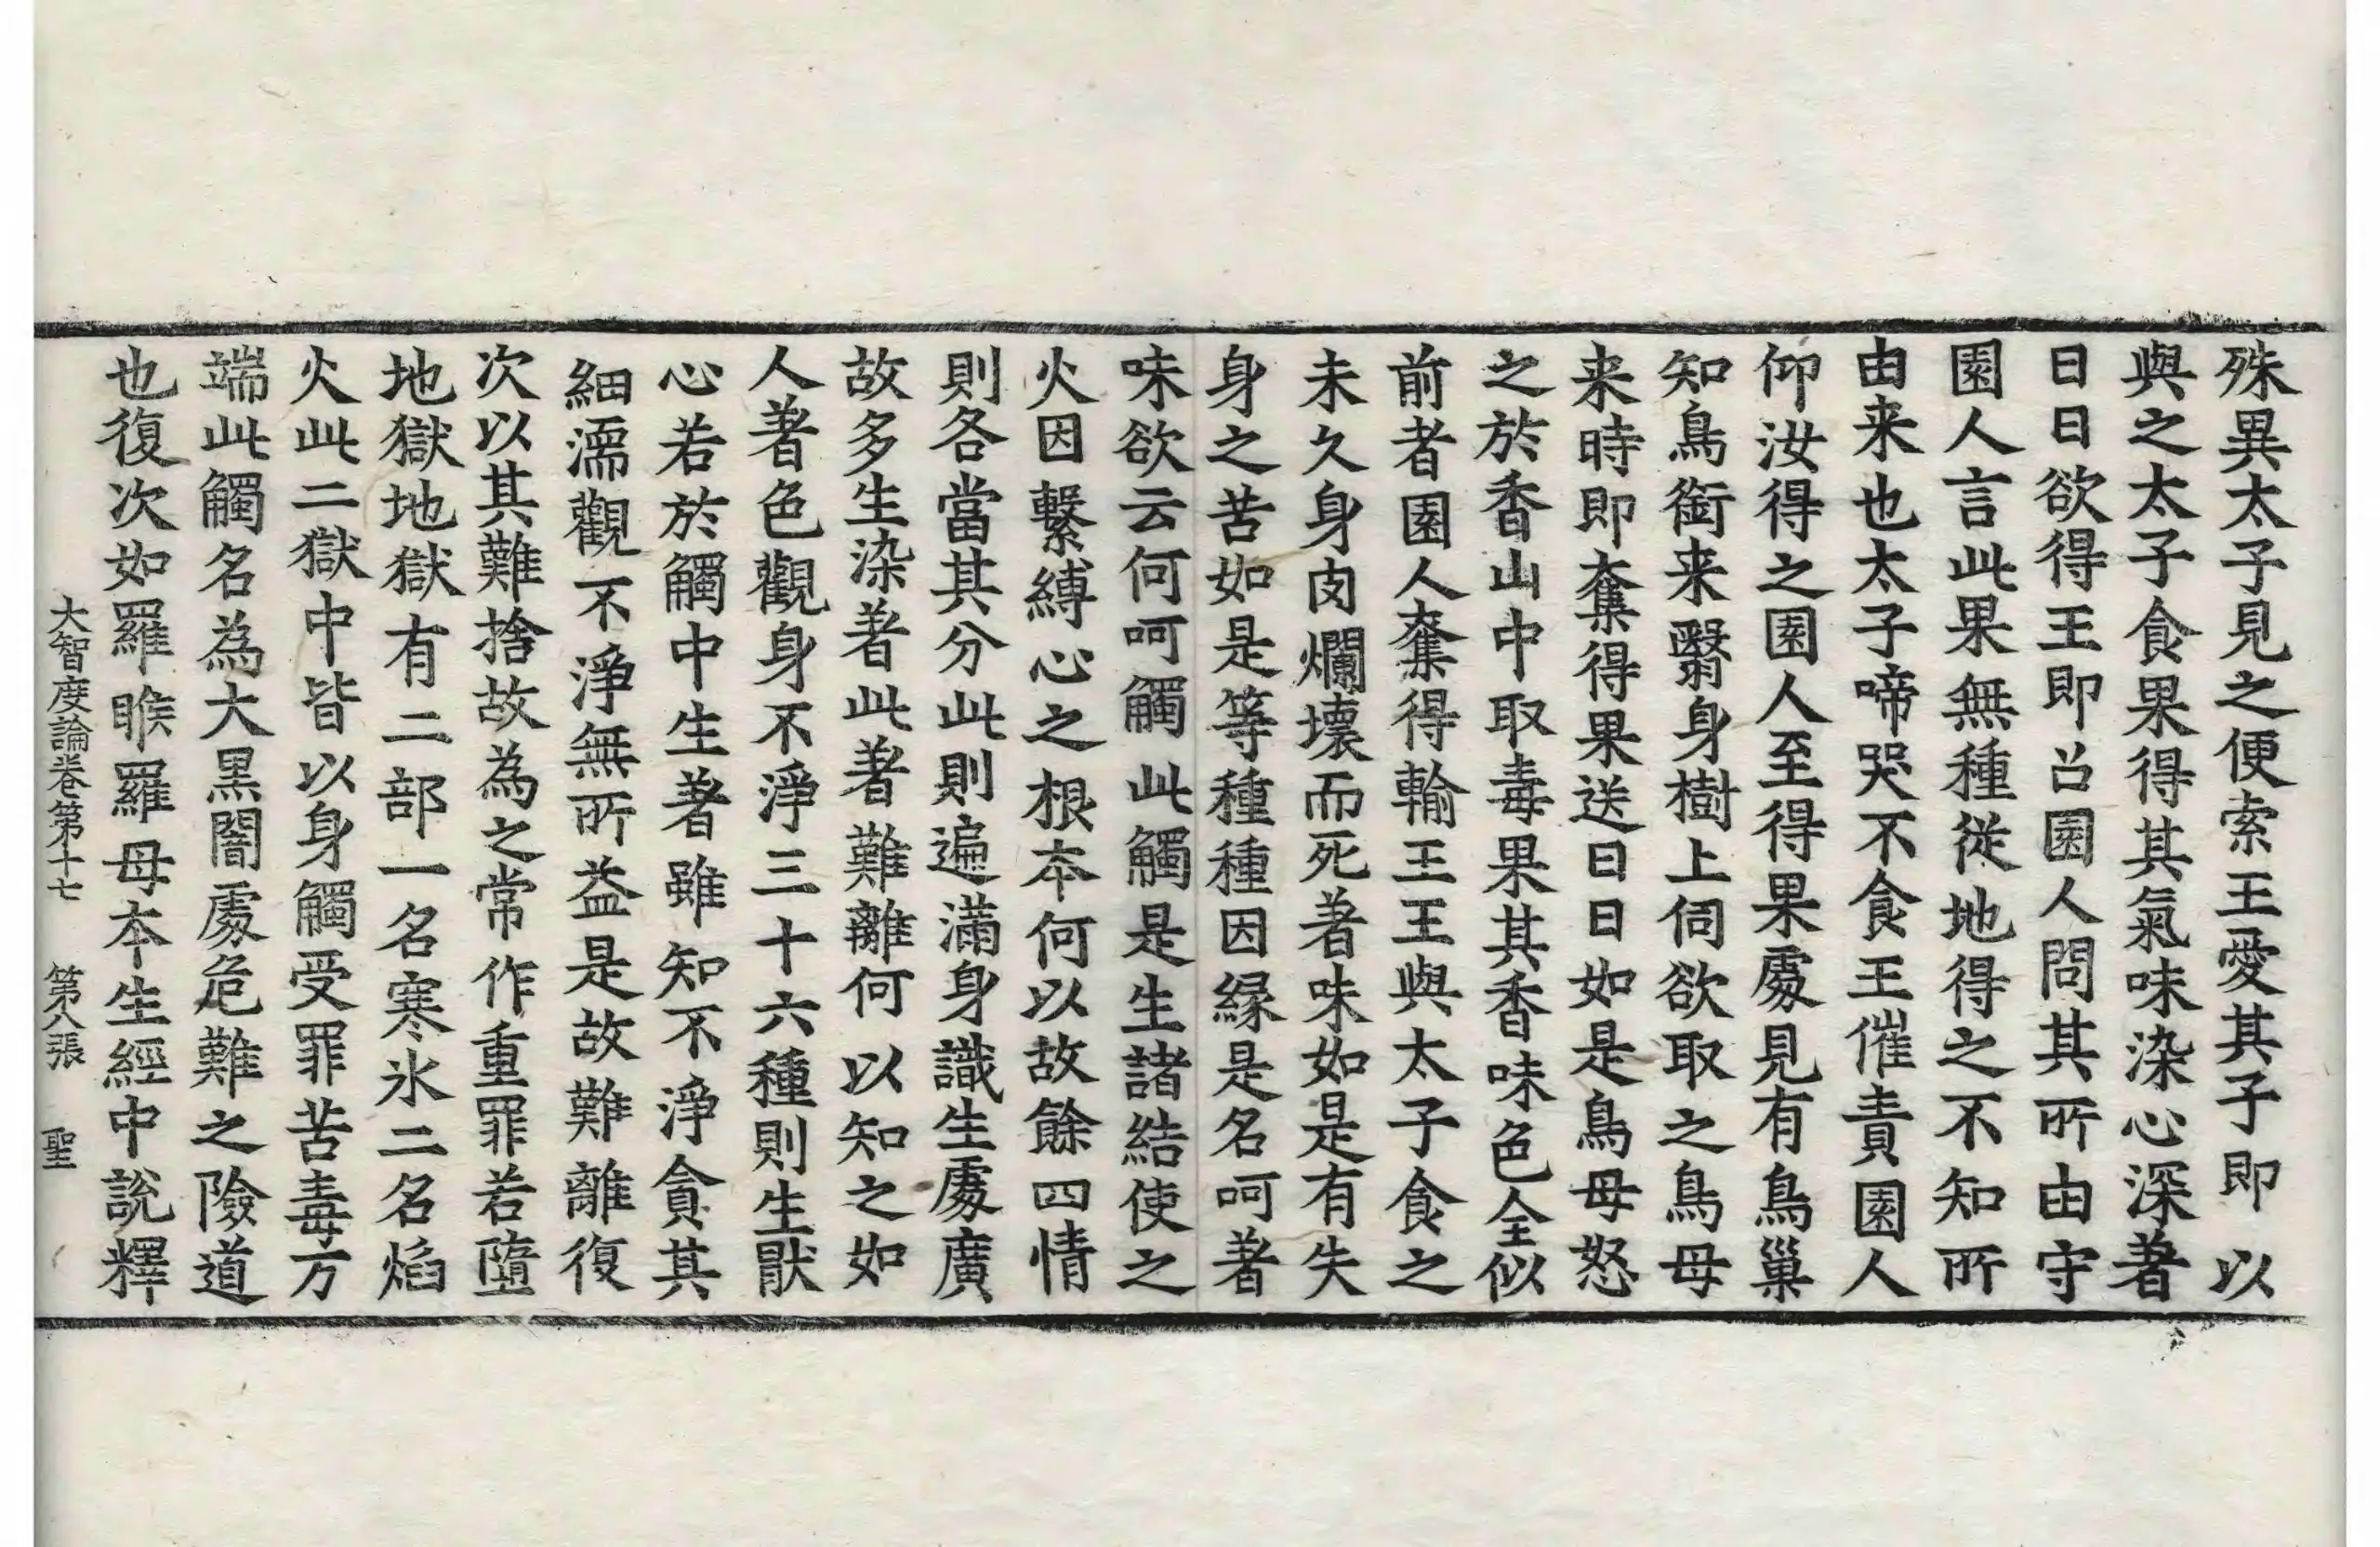 殊異太子見之便索王愛其子即以
與之太子食果得其氣味染心深著
日日欲得王即召園人問其所由守
園人言此果無種從地得之不知所
由来也太子啼哭不食王催責園人
仰汝得之園人至得果處見有鳥巢
知鳥銜来翳身樹上伺欲取之鳥母
来時即奪得果送日日如是鳥母怒
之於香山中取毒果其香味色全似
前者園人奪得輸王王與太子食之
未久身肉爛壞而死著味如是有失
身之苦如是等種種因緣是名呵著
味欲云何呵觸此觸是生諸結使之
火因繫縛心之根本何以故餘四情
則各當其分此則遍滿身識生處廣
故多生染著此著難離何以知之如
人著色觀身不淨三十六種則生猒
心若於觸中生著雖知不淨貪其
細濡觀不淨無所益是故難離復
次以其難捨故為之常作重罪若墮
地獄地獄有二部一名寒氷二名焰
火此二獄中皆以身觸受罪苦毒万
端此觸名為大黑闇處危難之險道
也復次如羅睺羅母本生經中說釋
大智度論卷第十七 第八張 聖